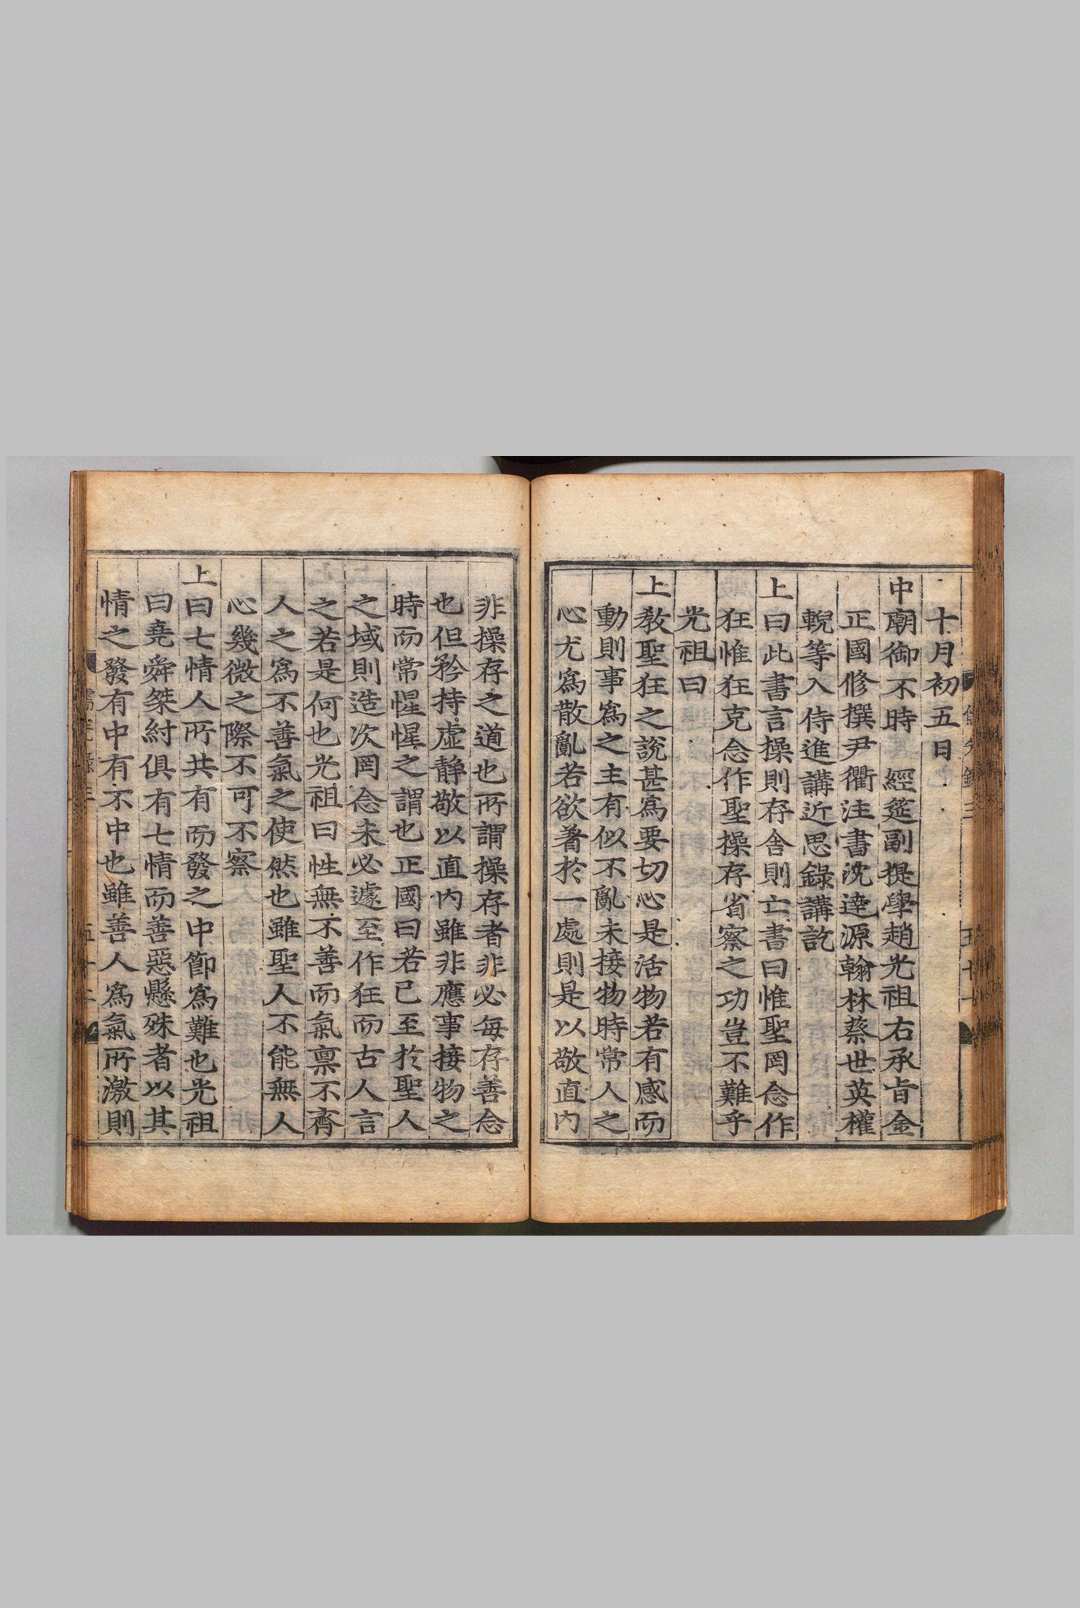 十月初五日
中廟御不時 經筵副提學趙光祖右承旨金
正國修撰尹衢注書沈達源翰林蔡世英權
輗等入侍進講近思錄講訖
上曰此書言操則存舍則亡書曰惟聖罔念作
狂惟狂克念作聖操存省察之功豈不難乎
光祖曰
上敎聖狂之說甚爲要切心是活物若有感而
動則事爲之主有似不亂未接物時常人之
心尤爲散亂若欲着於一處則是以敬直內
非操存之道也所謂操存者非必每存善念
也但矜持虛靜敬以直內雖非應事接物之
時而常惺惺之謂也正國曰若已至於聖人
之域則造次罔念未必遽至作狂而古人言
之若是何也光祖曰性無不善而氣禀不齊
人之爲不善氣之使然也雖聖人不能無人
心幾微之際不可不察
上曰七情人所共有而發之中節爲難也光祖
曰堯舜桀紂俱有七情而善惡懸殊者以其
情之發有中有不中也雖善人爲氣所激則